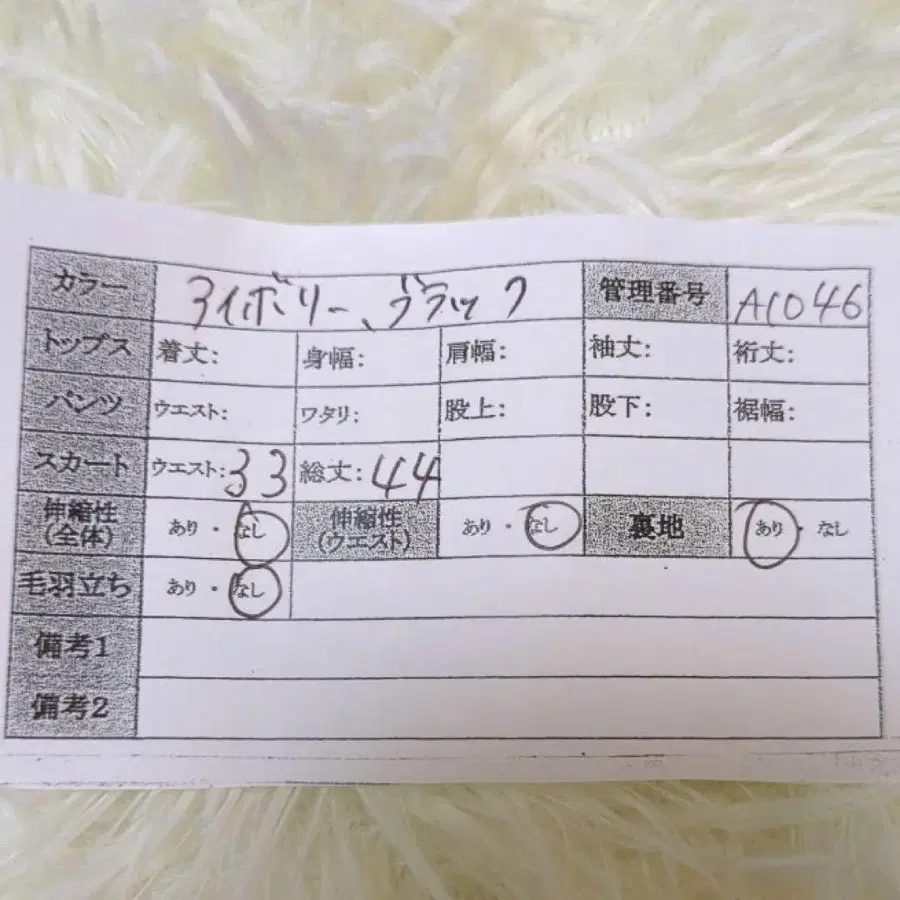 カラー アイボリー、ブラック 管理番号 A1046
トップス 着丈: 身幅: 肩幅: 袖丈: 裄丈:
パンツ ウエスト: ワタリ: 股上: 股下: 裾幅:
スカート ウエスト:33 総丈:44
伸縮性(全体) あり・なし 伸縮性(ウエスト) あり・なし 裏地 あり・なし
毛羽立ち あり・なし
備考1
備考2